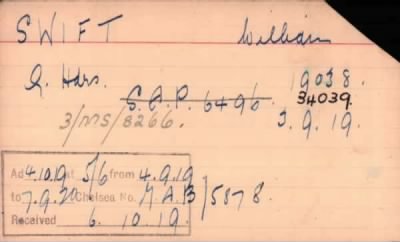 SWIFT William
Q. Hdrs. 19038.
S.A.P. 6496 34039.
3/MS/8266. 3.9.19.
Ad 4.10.19 at 5/6 from 4.9.19
to 7.9.20 Chelsea No. M.A.B/5878.
Received 6. 10.19.